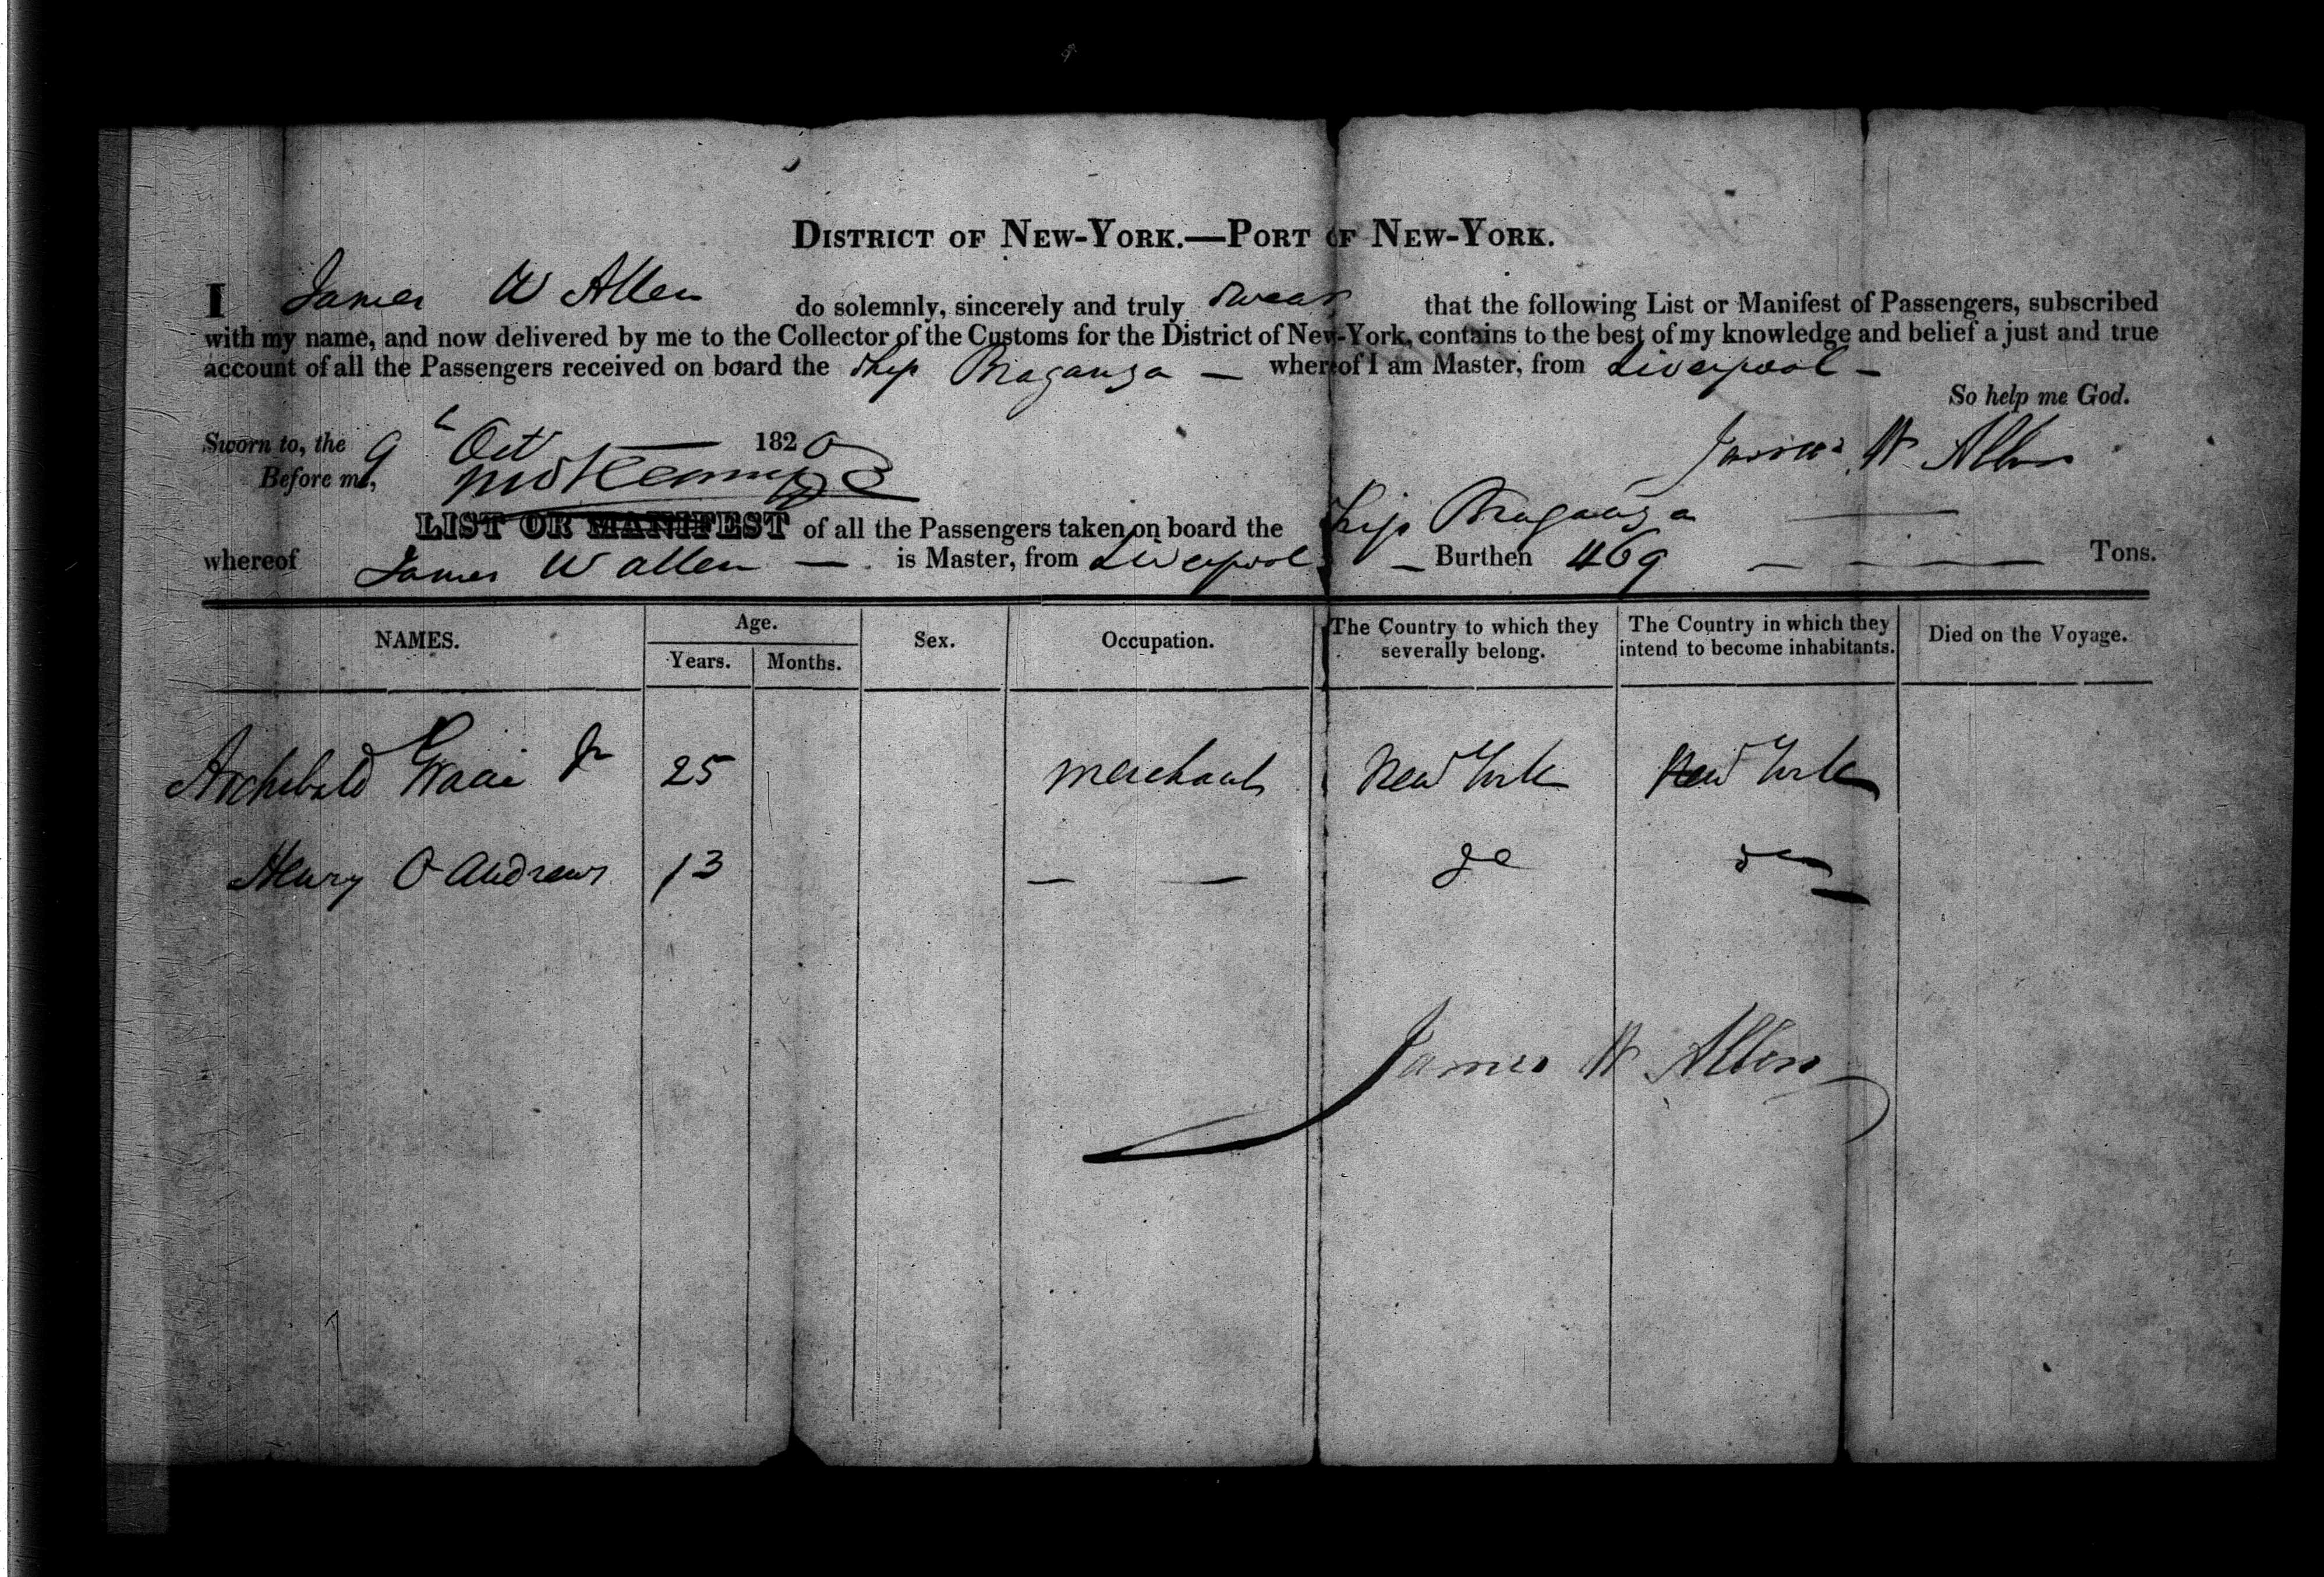 DISTRICT OF NEW-YORK.—PORT OF NEW-YORK.
I James W Allen do solemnly, sincerely and truly swear that the following List or Manifest of Passengers, subscribed
with my name, and now delivered by me to the Collector of the Customs for the District of New-York, contains to the best of my knowledge and belief a just and true
account of all the Passengers received on board the Ship Braganza — whereof I am Master, from Liverpool —
So help me God.
Sworn to, the 9 Oct — 1820
James W Allen
Before me,
LIST OR MANIFEST of all the Passengers taken on board the Ship Braganza —
whereof James W allen — is Master, from Liverpool — Burthen 469 — — — Tons.
NAMES. Age. Years. Months. Sex. Occupation. The Country to which they severally belong. The Country in which they intend to become inhabitants. Died on the Voyage.
Archibald Gracie Jr 25 merchant New York New York
Henry O Andrews 13 — — do do
James W Allen